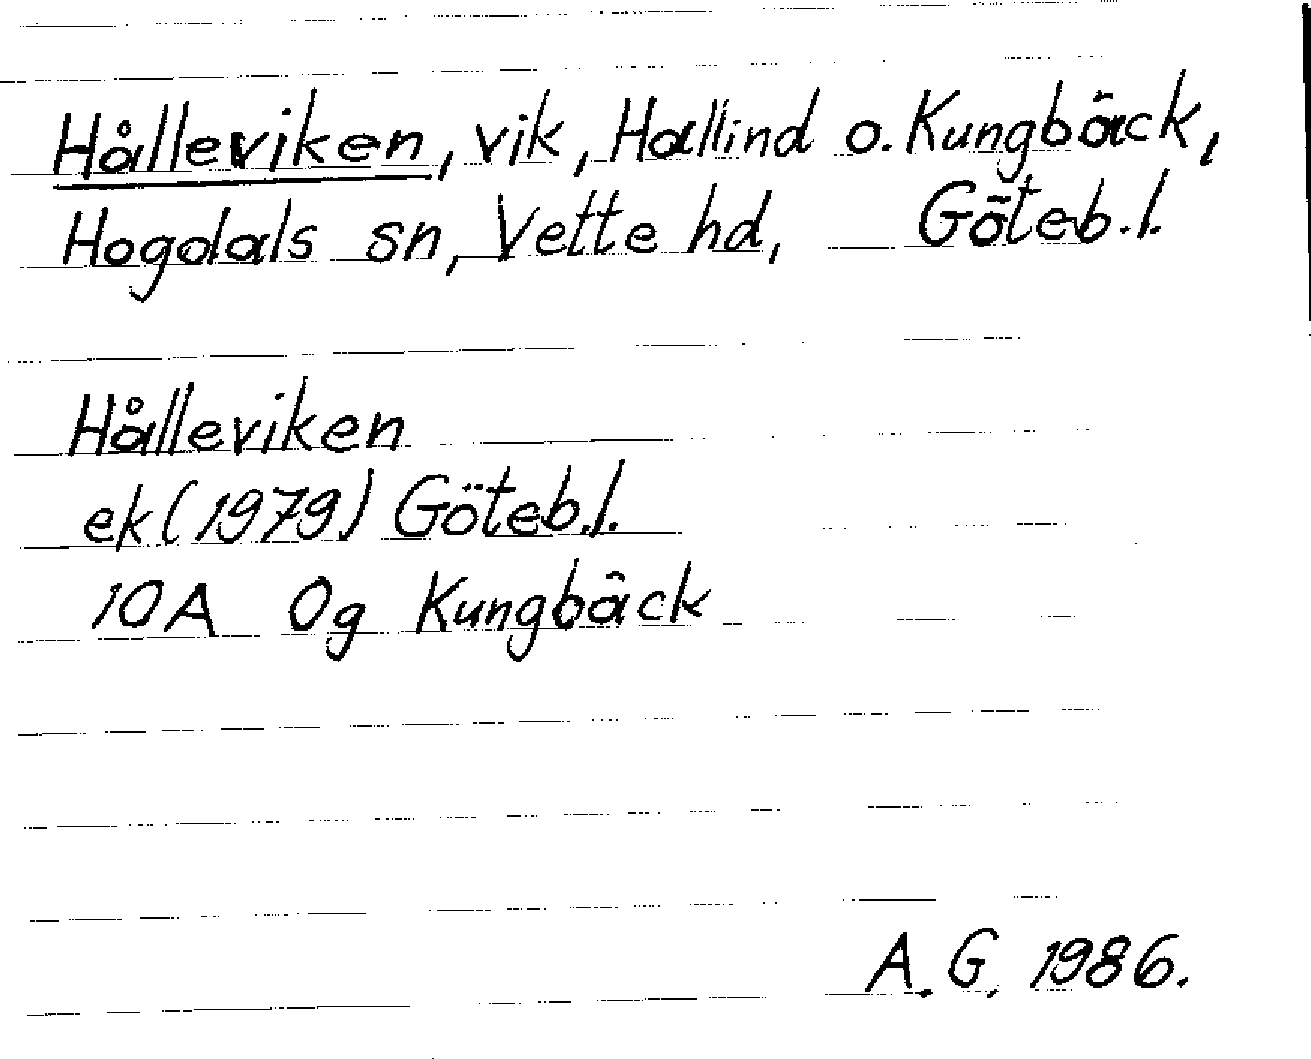 Hålleviken, vik, Hallind o. Kungbäck,
Hogdals sn, Vette hd, Göteb.l.
Hålleviken
ek (1979) Göteb.l.
10A 0g Kungbäck
A.G. 1986.